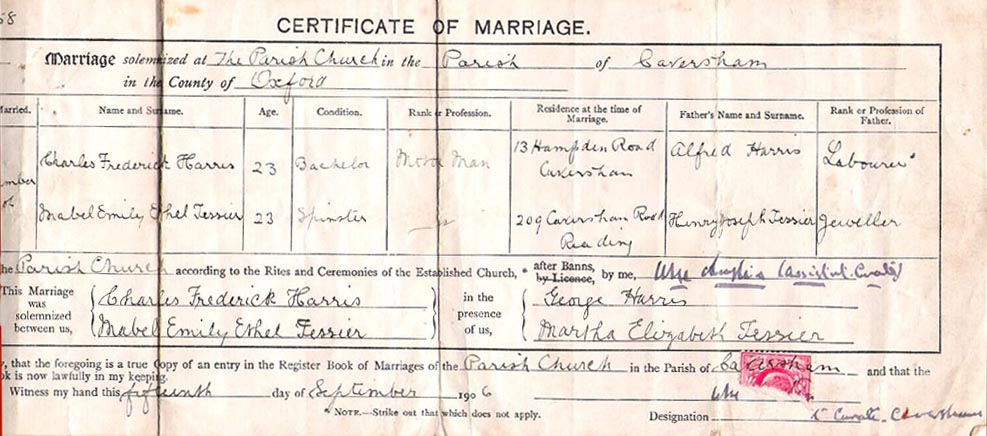 58
CERTIFICATE OF MARRIAGE.
Marriage solemnized at The Parish Church in the Parish of Caversham
in the County of Oxford
arried. Name and Surname. Age. Condition. Rank or Profession. Residence at the time of Marriage. Father's Name and Surname. Rank or Profession of Father.
Charles Frederick Harris 23 Bachelor Motor Man 13 Hampden Road Caversham Alfred Harris Labourer
mber
Mabel Emily Ethel Tessier 23 Spinster 209 Caversham Road Reading Henry Joseph Tessier Jeweller
he Parish Church according to the Rites and Ceremonies of the Established Church, * after Banns, by Licence, by me, (Assistant Curate)
This Marriage was solemnized between us, Charles Frederick Harris in the presence of us, George Harris
Mabel Emily Ethel Tessier Martha Elizabeth Tessier
y, that the foregoing is a true Copy of an entry in the Register Book of Marriages of the Parish Church in the Parish of Caversham and that the
ok is now lawfully in my keeping.
Witness my hand this fifteenth day of September 1906
* NOTE.—Strike out that which does not apply. Designation Curate. Caversham